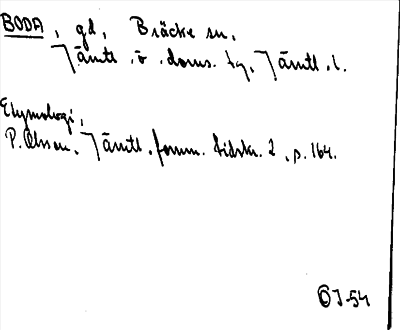 BODA, gd, Bräcke sn,
Jämtl. ö. doms. tg, Jämtl. l.
Etymologi,
P. Olsson, Jämtl. fornm. tidskr. 2, p. 164.
OJ-54